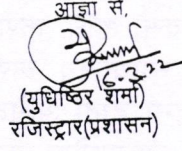 आज्ञा से,
16-3-22
(युधिष्ठिर शर्मा)
रजिस्ट्रार(प्रशासन)